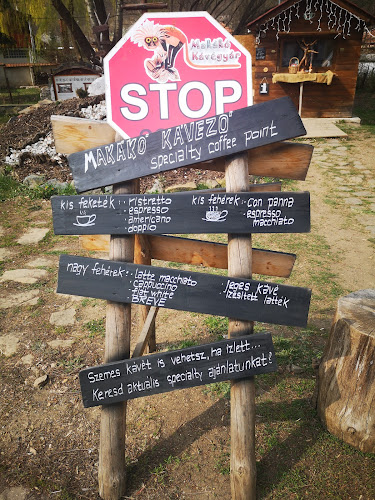 Makákó
Kávégyár
STOP
MAKAKÓ KÁVÉZÓ
specialty coffee point
kis feketék: ristretto
espresso
americano
doppio
kis fehérek: con panna
espresso
macchiato
nagy fehérek: latte macchiato
cappuccino
flat white
BREVE
jeges kávé
ízesített latték
Szemes kávét is vehetsz, ha ízlett...
Keresd aktuális specialty ajánlatunkat!